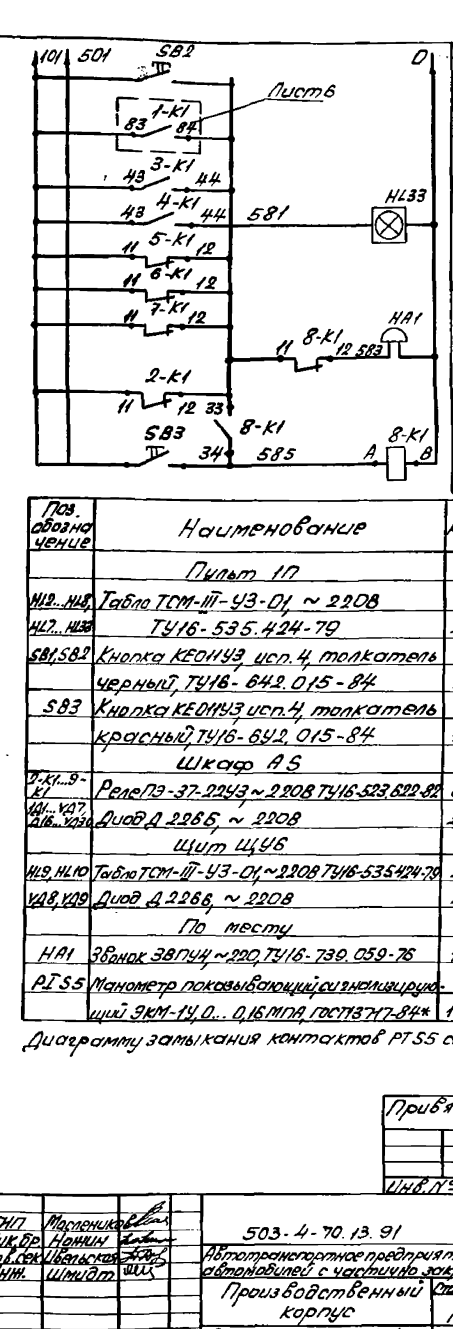 101 501 SB2 0
Лист 6
1-К1
83 84
3-К1
43 44
4-К1
43 44 581 HL33
5-К1
11 12
6-К1
11 12
7-К1
11 12
8-К1 НА1
11 12 583
2-К1
11 12 33
8-К1
SB3 34 585 А 8-К1 В
Поз.
обозна
чение
Наименование
Пульт 1П
Табло ТСМ-III-У3-01, ~ 220В
ТУ16-535.424-79
SB1, SB2 Кнопка КЕ011У3, исп. 4, толкатель
черный, ТУ16-642.015-84
SB3 Кнопка КЕ011У3, исп. 4, толкатель
красный, ТУ16-642.015-84
Шкаф А5
2-К1...9-
К1
Реле ПЭ-37-22У3 ~ 220В ТУ16-523.622-82
Диод Д 226Б, ~ 220В
Щит ЩУ6
HL9, HL10 Табло ТСМ-III-У3-01, ~ 220В ТУ16-535.424-79
VД8, VД9 Диод Д 226Б, ~ 220В
По месту
НА1 Звонок ЗВПУ4, ~220, ТУ16-739.059-76
PIS5 Манометр показывающий, сигнализирую-
щий ЭКМ-1У, 0...0,16 МПа, ГОСТ 13717-84* 1
Диаграмму замыкания контактов PTS5 с
Привя
Инв.№
ГИП Маслеников
Ножин
Шмидт
503-4-70.13.91
Автотранспортное предприят
автомобилей с частично зак
Производственный
корпус
Ста